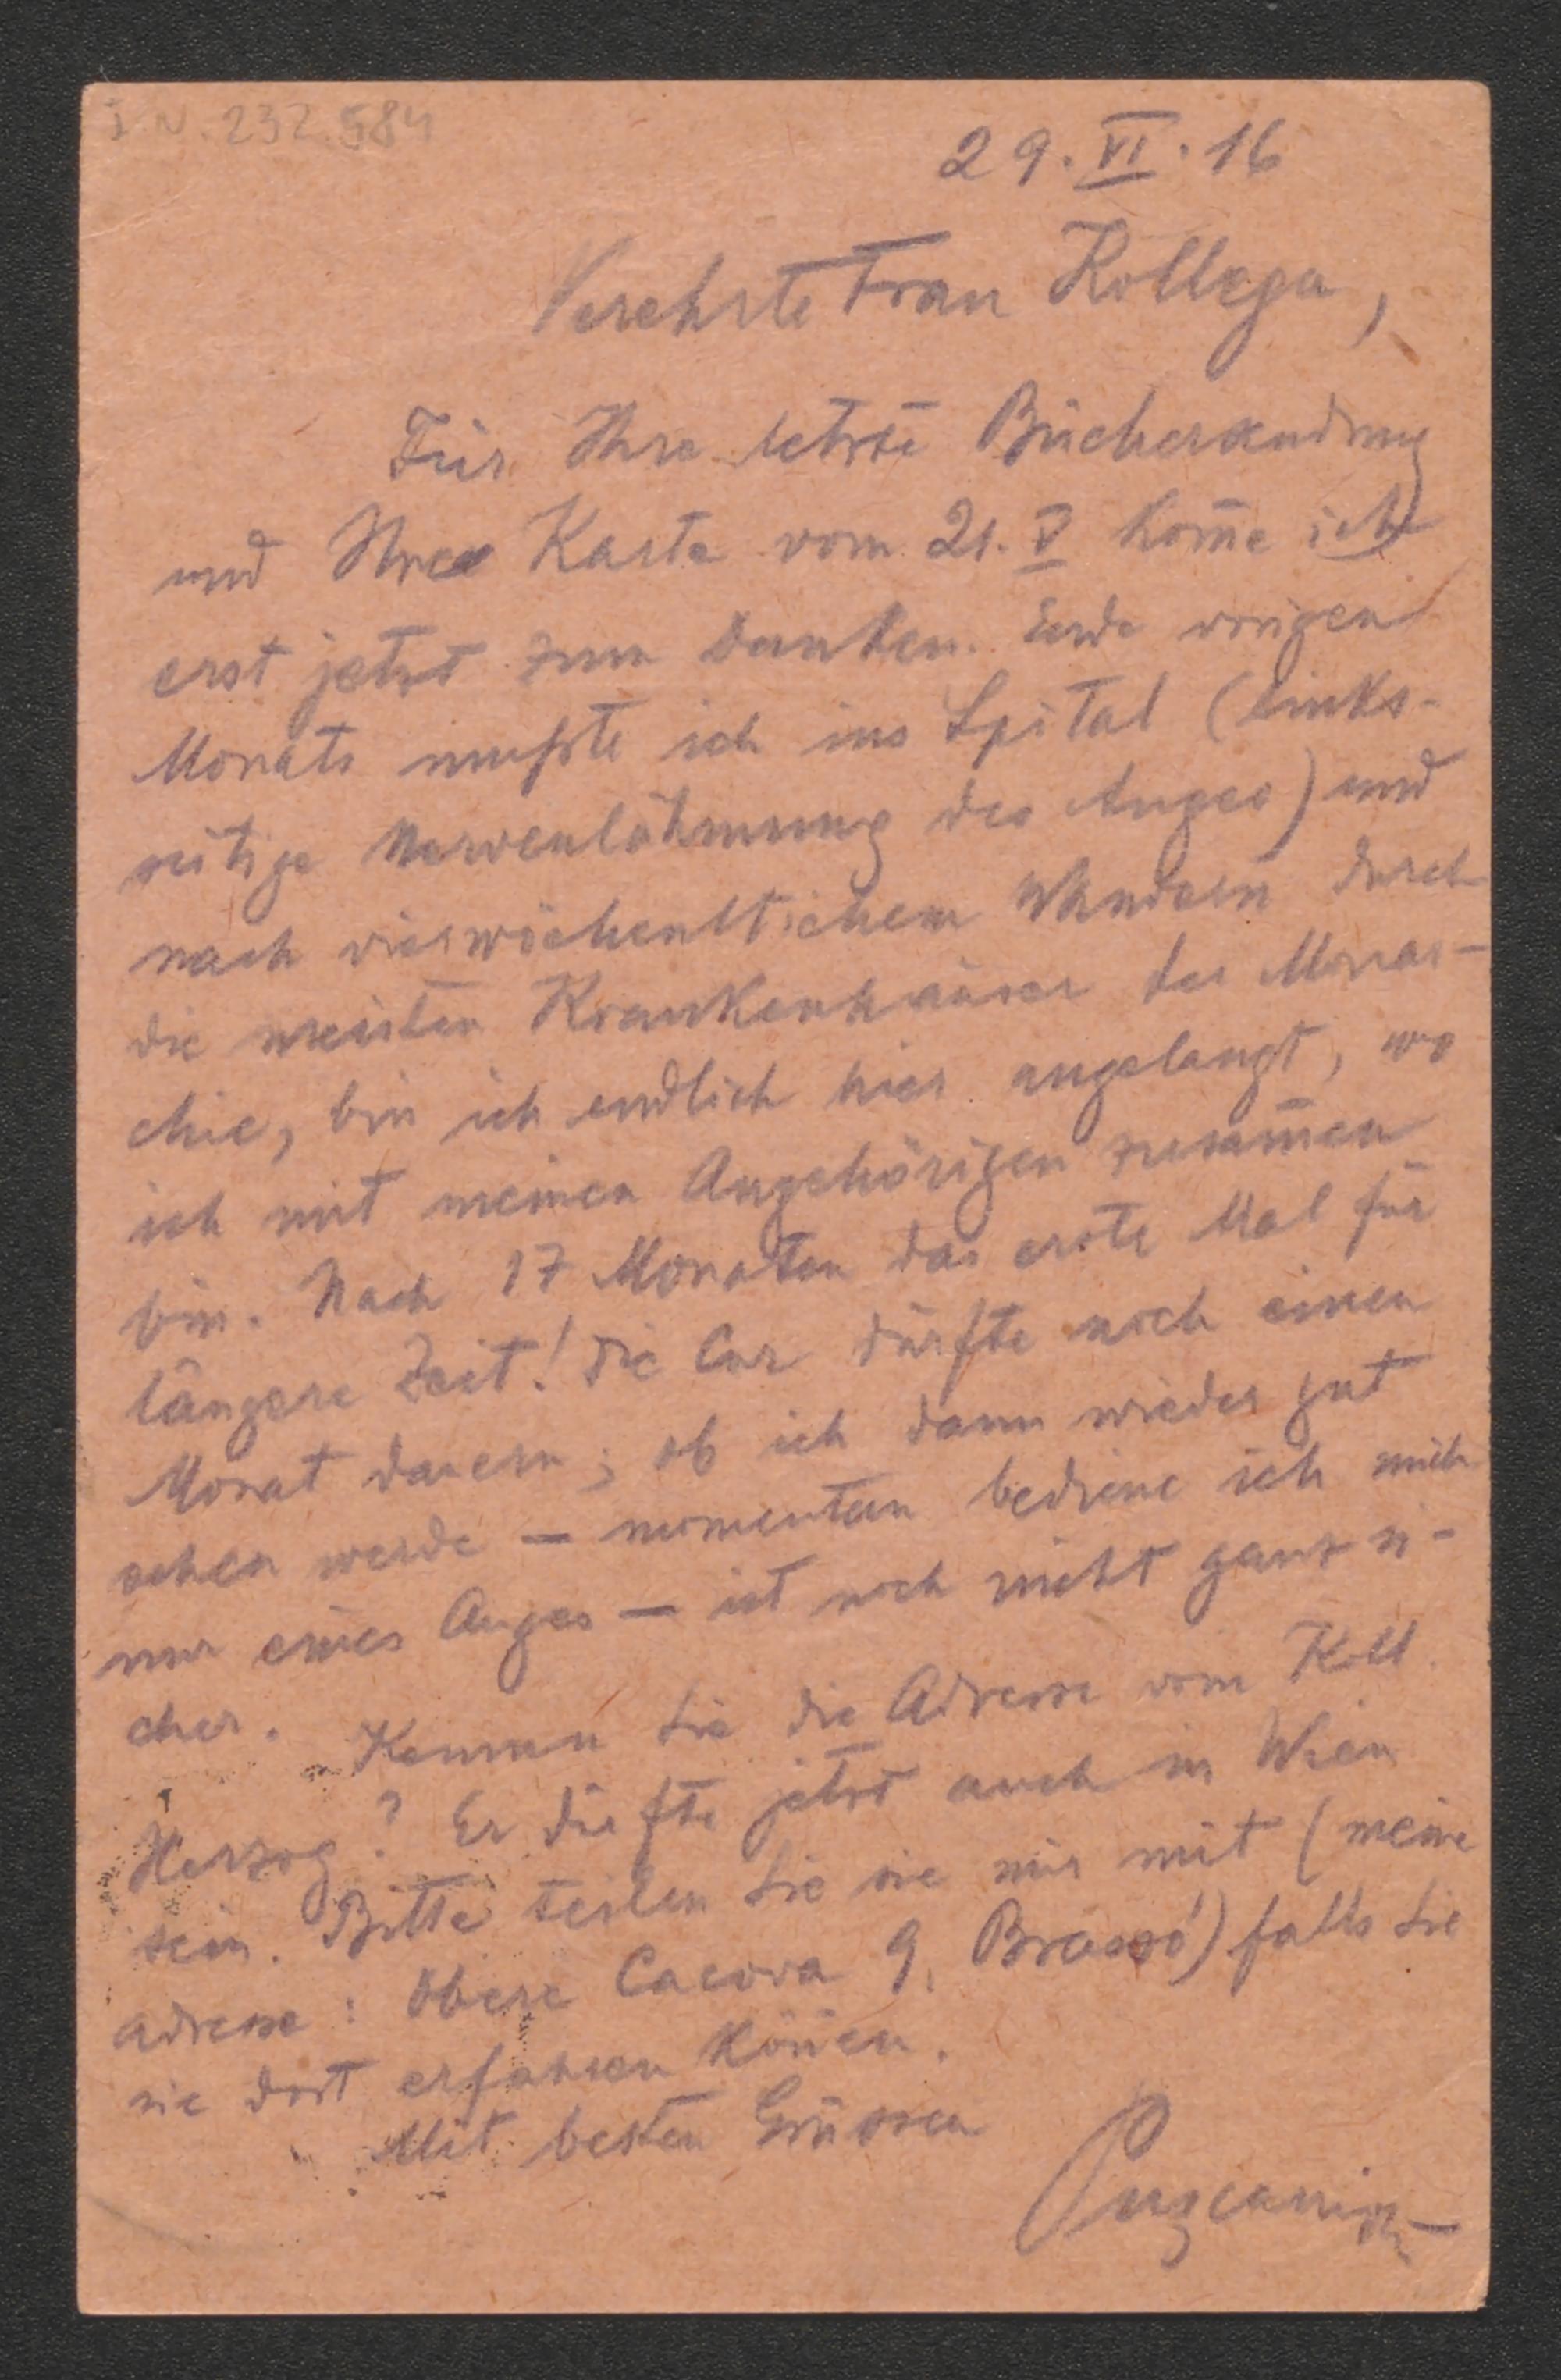 I.N. 232.584
29. VI. 16
Verehrte Frau Kollega,
Für Ihre letzte Büchersendung
und Ihre Karte vom 21. V kom̄e ich
erst jetzt zum Danken. Ende vorigen
Monats mußte ich ins Spital (links-
seitige Nervenlähmung des Auges) und
nach vierwöchentlichem Wandern durch
die meisten Krankenhäuser der Monar-
chie, bin ich endlich hier angelangt, wo
ich mit meinen Angehörigen zusam̄en
bin. Nach 17 Monaten das erste Mal für
längere Zeit! Die Cur dürfte noch einen
Monat dauern; ob ich dann wieder gut
sehen werde — momentan bediene ich mich
nur eines Auges — ist noch nicht ganz si-
cher. Kennen Sie die Adresse vom Koll.
Herzog? Er dürfte jetzt auch in Wien
sein. Bitte teilen Sie sie mir mit (meine
Adresse: Obere Cacova 9, Brassó) falls Sie
sie dort erfahren kön̄en.
Mit besten Grüssen
Puşcariu